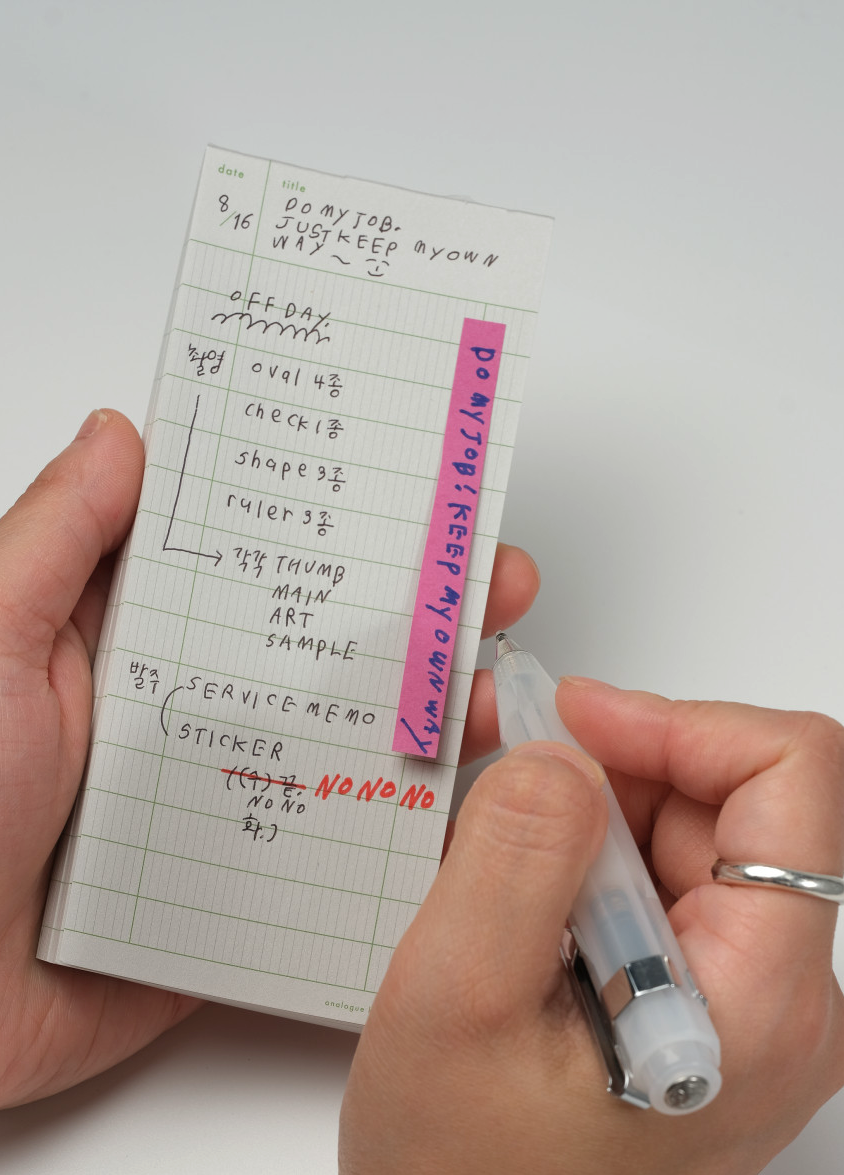 date
title
8/16
DO MY JOB.
JUST KEEP MY OWN
WAY ~
OFF DAY.
촬영
oval 4종
check 1종
shape 3종
ruler 3종
각각 THUMB
MAIN
ART
SAMPLE
발주
SERVICE MEMO
STICKER
((수) 끝. NO NO NO
NO NO
화.)
DO MY JOB! KEEP MY OWN WAY
analogue